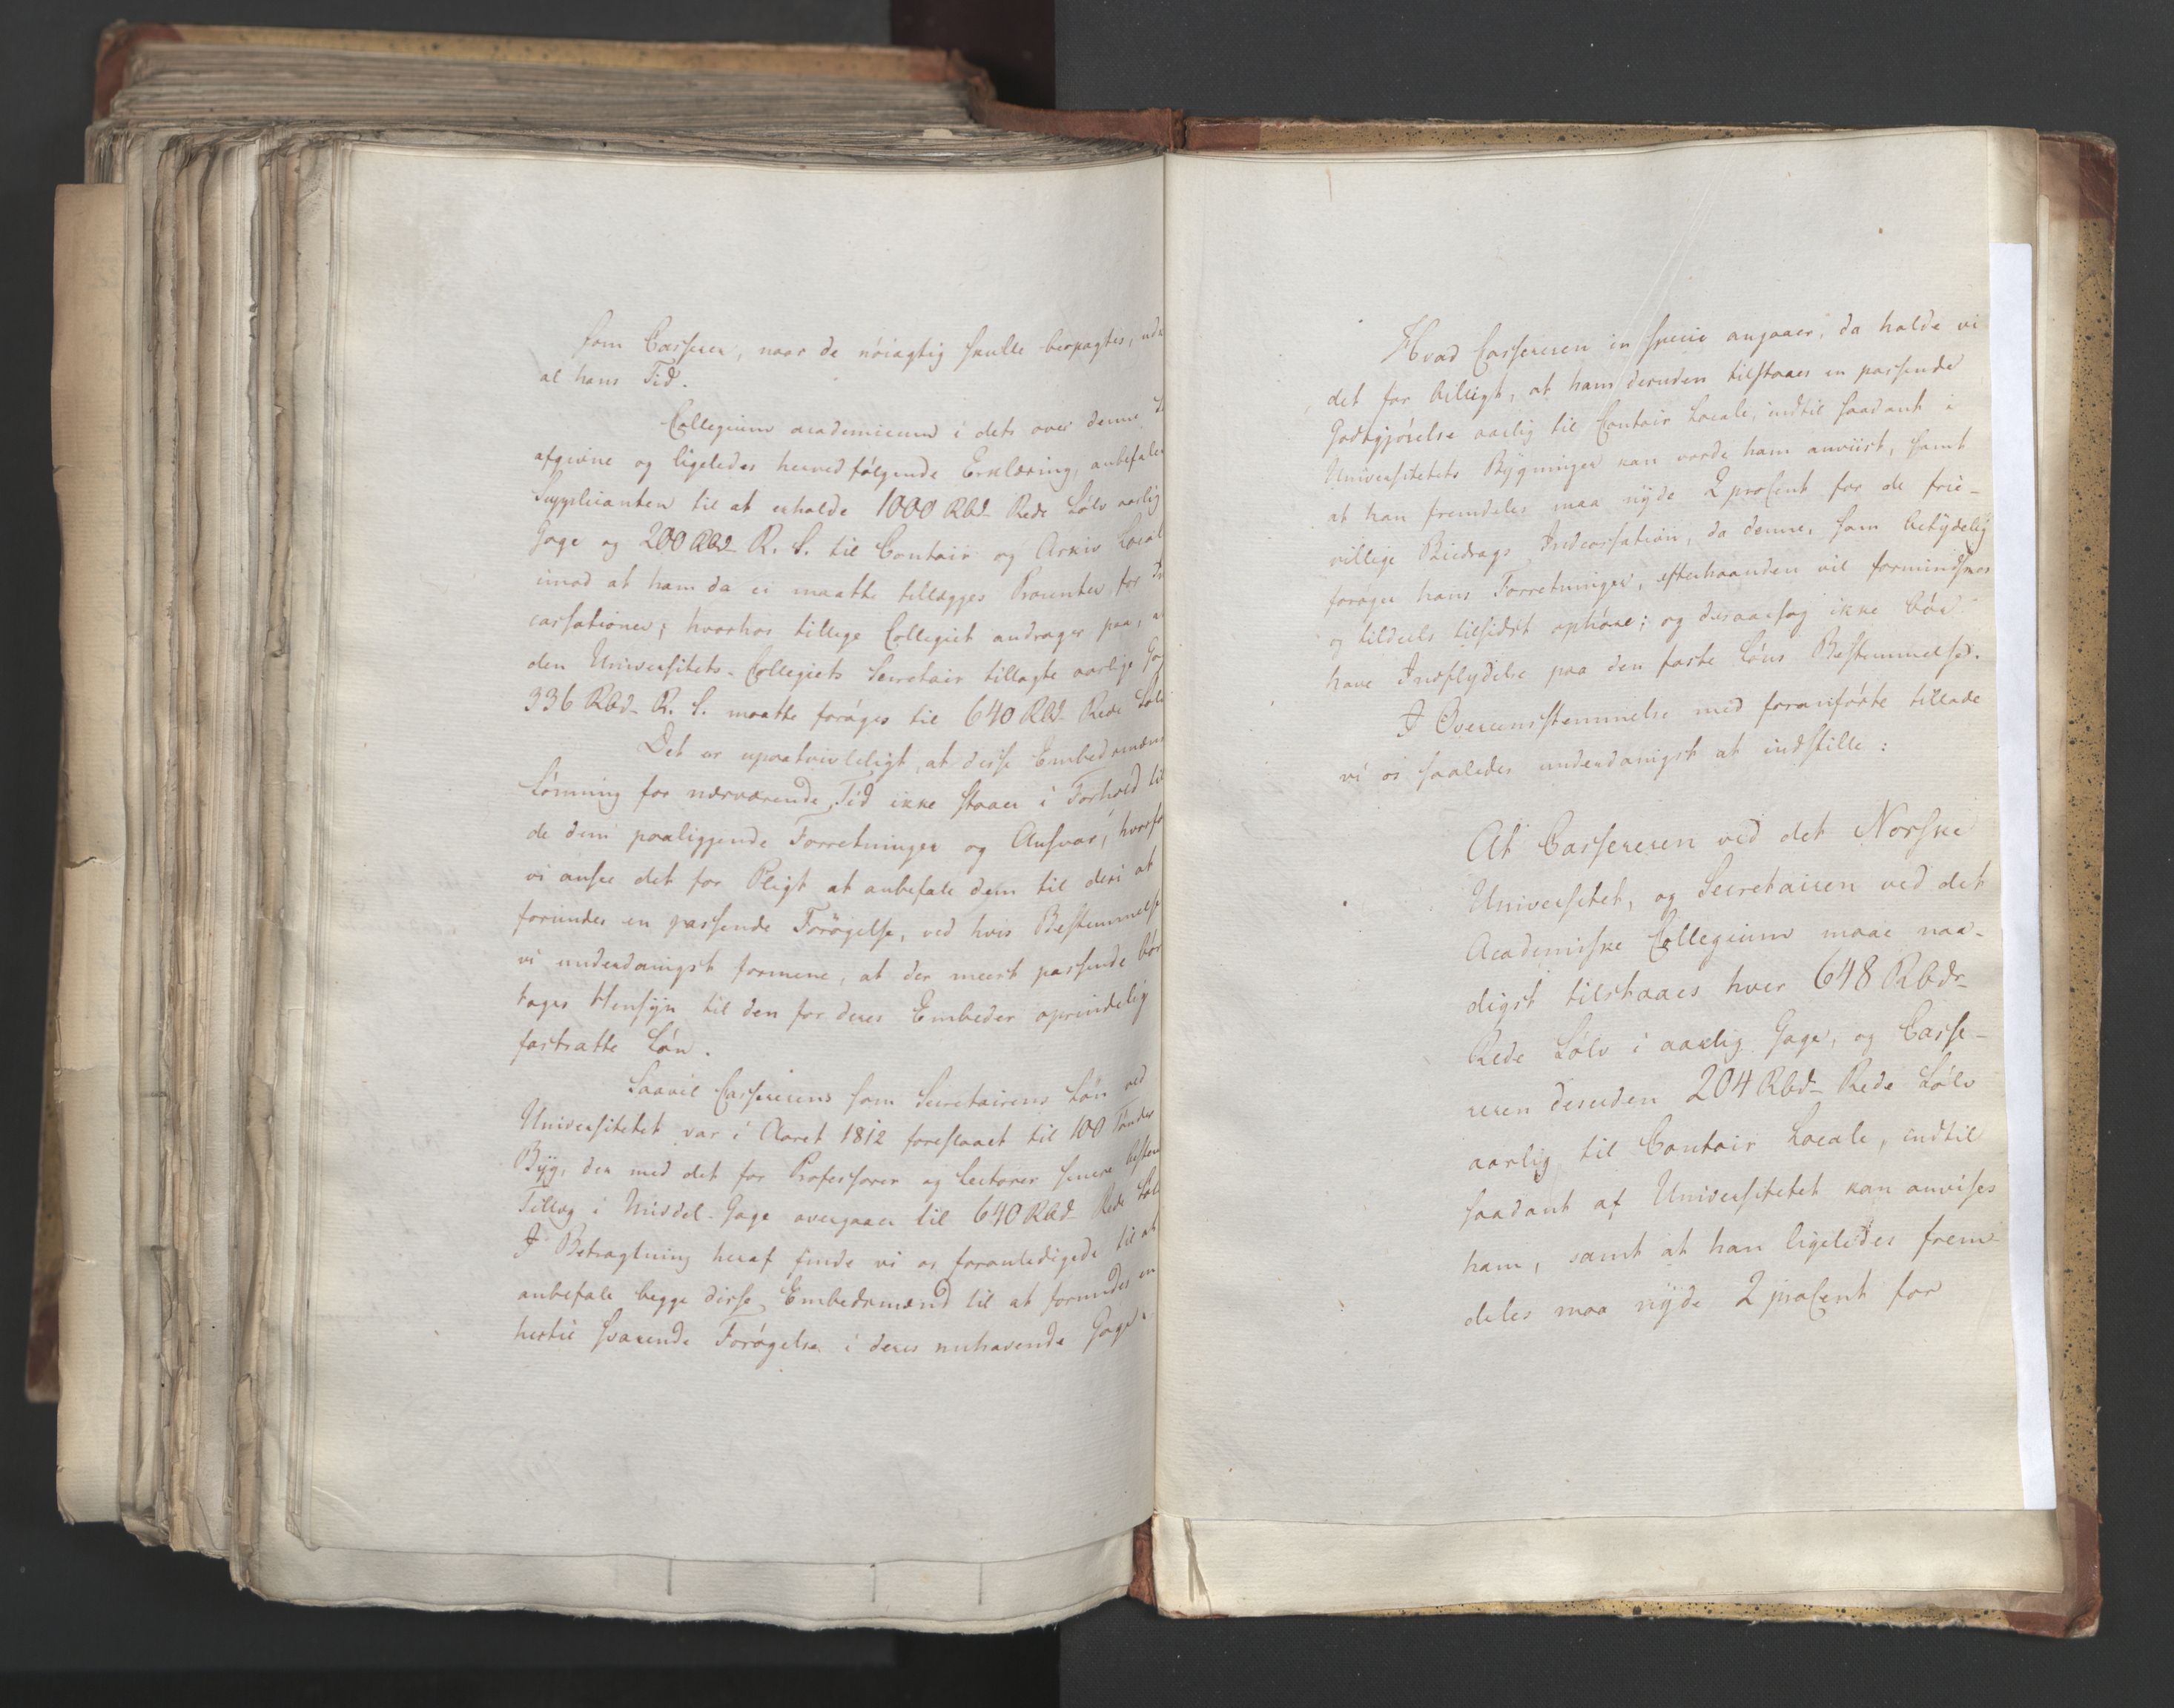 som Casserer, naar de nöiagtig skulle besørges, ud
al hans Tid.
Collegium academicum i dets over denne
afgivne og ligeledes hermed følgende Erklæring, anbefaler
Supplicanten til at erholde 1000 Rbd. Rede Sölv aarlig
Gage og 200 Rbd. R. S. til Contoir og Arkiv Local
imod at ham da ei maatte tillægges Procenter for In
cassationer; hvorhos tillige Collegiet andrager paa, at
den Universitets-Collegiets Secretair tillagte aarlige Ga
336 Rbd. R. S. maatte foröges til 640 Rbd. Rede Sölv
Det er upaatvivleligt, at disse Embedsmænds
Lönning for nærværende Tid ikke staaer i Forhold til
de dem paaliggende Forretninger og Ansvar, hvorfor
vi ansee det for Pligt at anbefale dem til deri at
forundes en passende Forögelse, ved hvis Bestemmelse
vi underdanigst formene, at der meest passende bör
tages Hensyn til den for deres Embeder oprindelig
fastsatte Lön.
Saavel Cassererens som Secretairens Lön ved
Universitetet var i Aaret 1812 foreslaaet til 100 Tönder
Byg, der med det for Professorer og Lectorer senere bestem
Tillæg i Middel-Gage overgaaer til 640 Rbd. Rede Sölv
I Betragtning heraf finde vi os foranledigede til at
anbefale begge disse Embedsmænd til at forundes en
hertil svarende Forögelse i deres nuhavende Gage.
Hvad Cassereren in specie angaaer, da holde vi
det for billigt, at ham desuden tilstaaes en passende
Godtgjörelse aarlig til Contoir Locale, indtil saadant i
Universitetets Bygninger kan vorde ham anviist, samt
at han fremdeles maa nyde 2 proCent for de frie-
villige Bidrags Indcassation, da denne, som betydelig
foröger hans Forretninger, efterhaanden vil formindskes
og tildeels tilsidst ophöre; og desaarsag ikke bör
have Indflydelse paa den faste Löns Bestemmelse.
I Overeensstemmelse med foranförte tillade
vi os saaledes underdanigst at indstille:
At Cassereren ved det Norske
Universitet, og Secretairen ved det
Academiske Collegium maae naa-
digst tilstaaes hver 648 Rbdr.
Rede Sölv i aarlig Gage, og Casse-
reren desuden 204 Rbd. Rede Sölv
aarlig til Contoir Locale, indtil
saadant af Universitetet kan anvises
ham, samt at han ligeledes frem-
deles maa nyde 2 proCent for